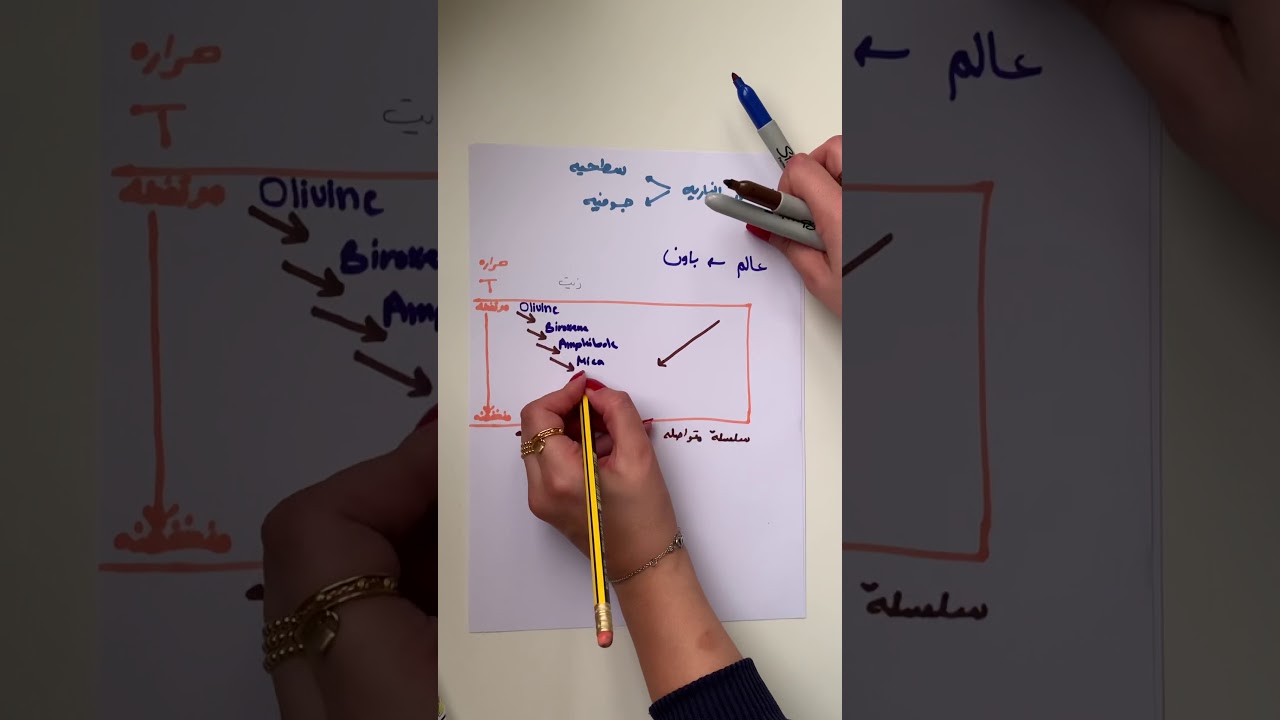 سطحيه
الناريه
جوفيه
عالم ← باون
حراره
T
زيت
مرتفعه
Olivine
Biroxene
Amphibole
Mica
منخفضه
سلسلة متواصله